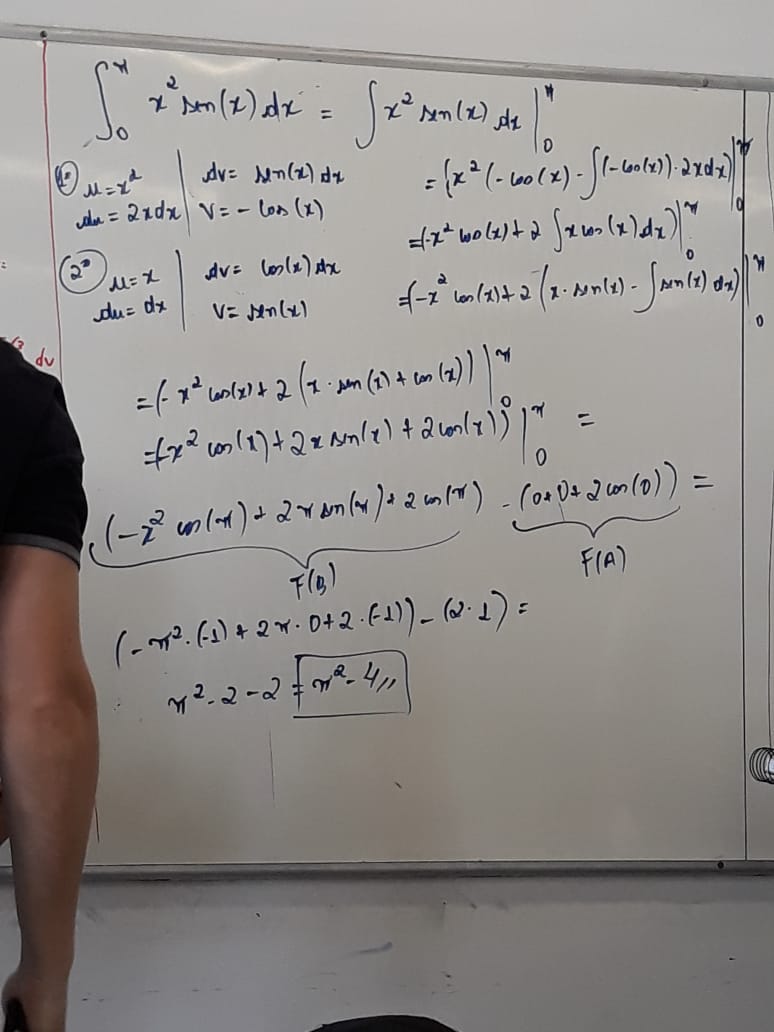 ∫₀^π x² sen(x) dx = ∫ x² sen(x) dx |₀^π
1º u = x² | dv = sen(x) dx
du = 2x dx | v = - cos(x)
= (x² (- cos(x) - ∫(-cos(x)) · 2x dx) |₀^π
= (-x² cos(x) + 2 ∫ x cos(x) dx) |₀^π
2º u = x | dv = cos(x) dx
du = dx | v = sen(x)
= (-x² cos(x) + 2 (x · sen(x) - ∫ sen(x) dx) |₀^π
dv
= (- x² cos(x) + 2 (x · sen(x) + cos(x)) |₀^π
= (-x² cos(x) + 2x sen(x) + 2 cos(x)) |₀^π =
(-π² cos(π) + 2π sen(π) + 2 cos(π)) - (0+0+2 cos(0)) =
F(B) F(A)
(- π² · (-1) + 2π · 0 + 2 · (-1)) - (2 · 1) =
π² - 2 - 2 = π² - 4 //